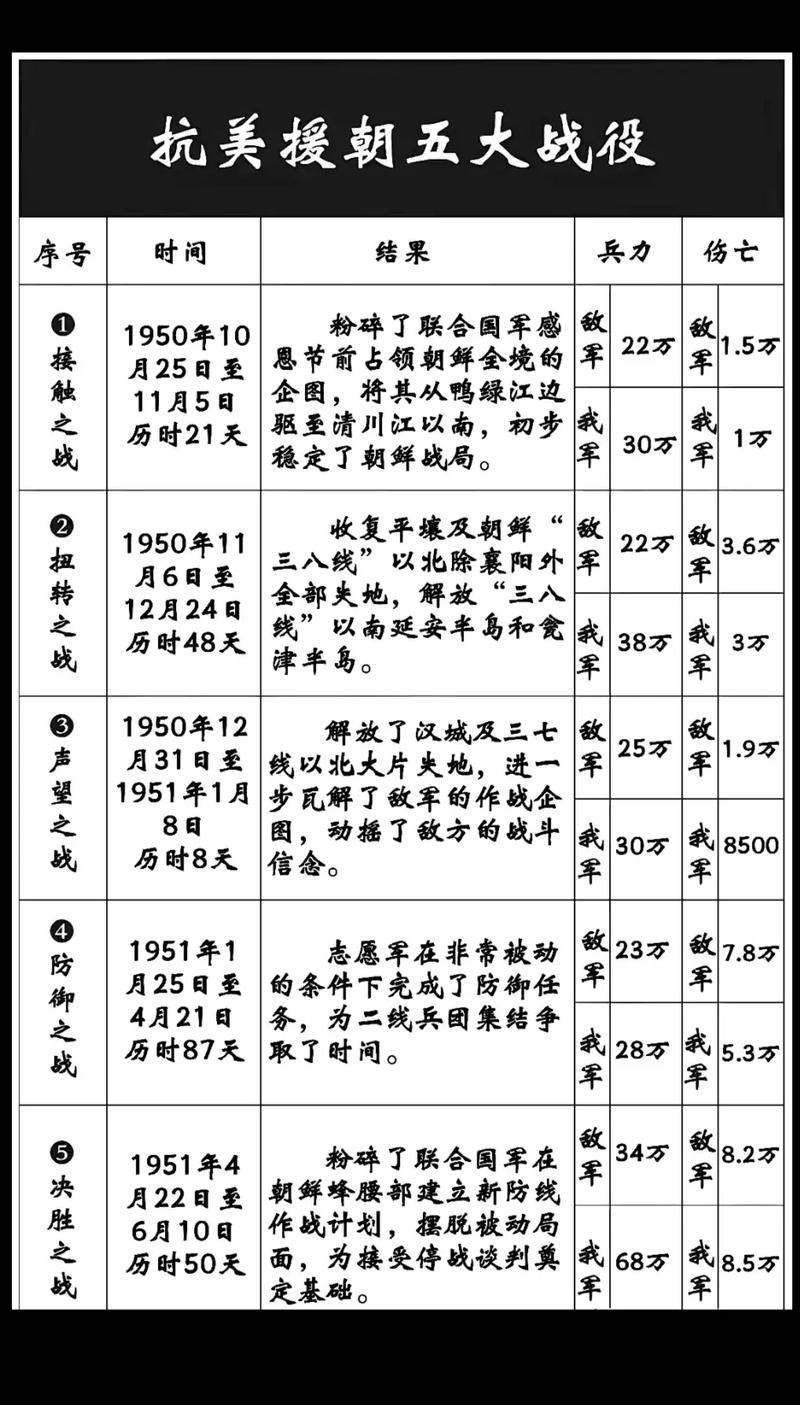 抗美援朝五大战役
序号 时间 结果 兵力 伤亡
❶接触之战
1950年10
月25日至
11月5日
历时21天
粉碎了联合国军感
恩节前占领朝鲜全境的
企图，将其从鸭绿江边
驱至清川江以南，初步
稳定了朝鲜战局。
敌军 22万 敌军 1.5万
我军 30万 我军 1万
❷扭转之战
1950年11
月6日至
12月24日
历时48天
收复平壤及朝鲜“
三八线”以北除襄阳外
全部失地，解放“三八
线”以南延安半岛和瓮
津半岛。
敌军 22万 敌军 3.6万
我军 38万 我军 3万
❸声望之战
1950年12
月31日至
1951年1月
8日
历时8天
解放了汉城及三七
线以北大片失地，进一
步瓦解了敌军的作战企
图，动摇了敌方的战斗
信念。
敌军 25万 敌军 1.9万
我军 30万 我军 8500
❹防御之战
1951年1
月25日至
4月21日
历时87天
志愿军在非常被动
的条件下完成了防御任
务，为二线兵团集结争
取了时间。
敌军 23万 敌军 7.8万
我军 28万 我军 5.3万
❺决胜之战
1951年4
月22日至
6月10日
历时50天
粉碎了联合国军在
朝鲜蜂腰部建立新防线
作战计划，摆脱被动局
面，为接受停战谈判奠
定基础。
敌军 34万 敌军 8.2万
我军 68万 我军 8.5万